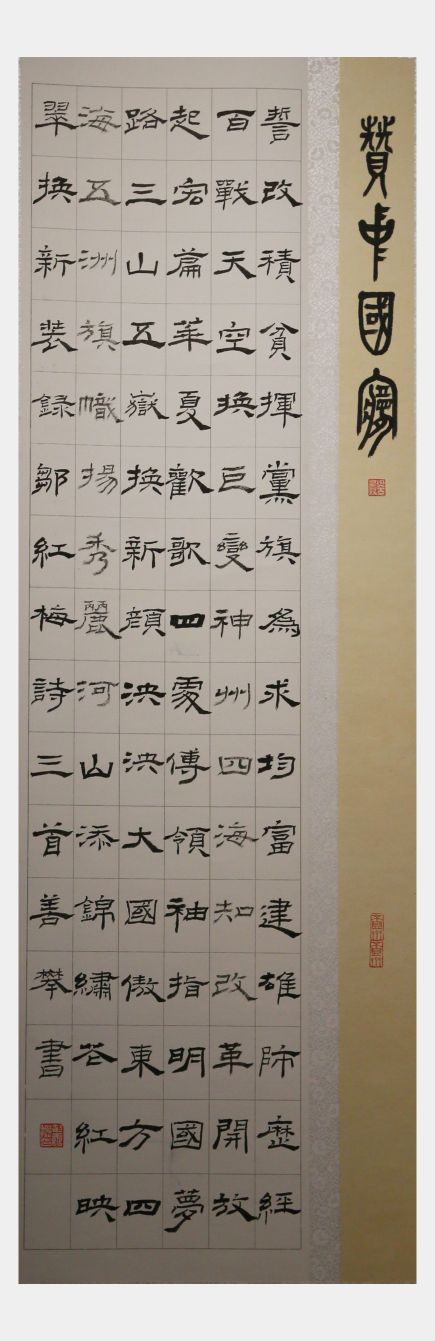 贊中國夢
誓改積貧揮黨旗爲求均富建雄師歷經
百戰天空換巨變神州四海知改革開放
起宏篇華夏歡歌四處傳領袖指明國夢
路三山五嶽換新顏泱泱大國傲東方四
海五洲旗幟揚秀麗河山添錦繡花紅映
翠換新裝錄鄒紅梅詩三首善攀書